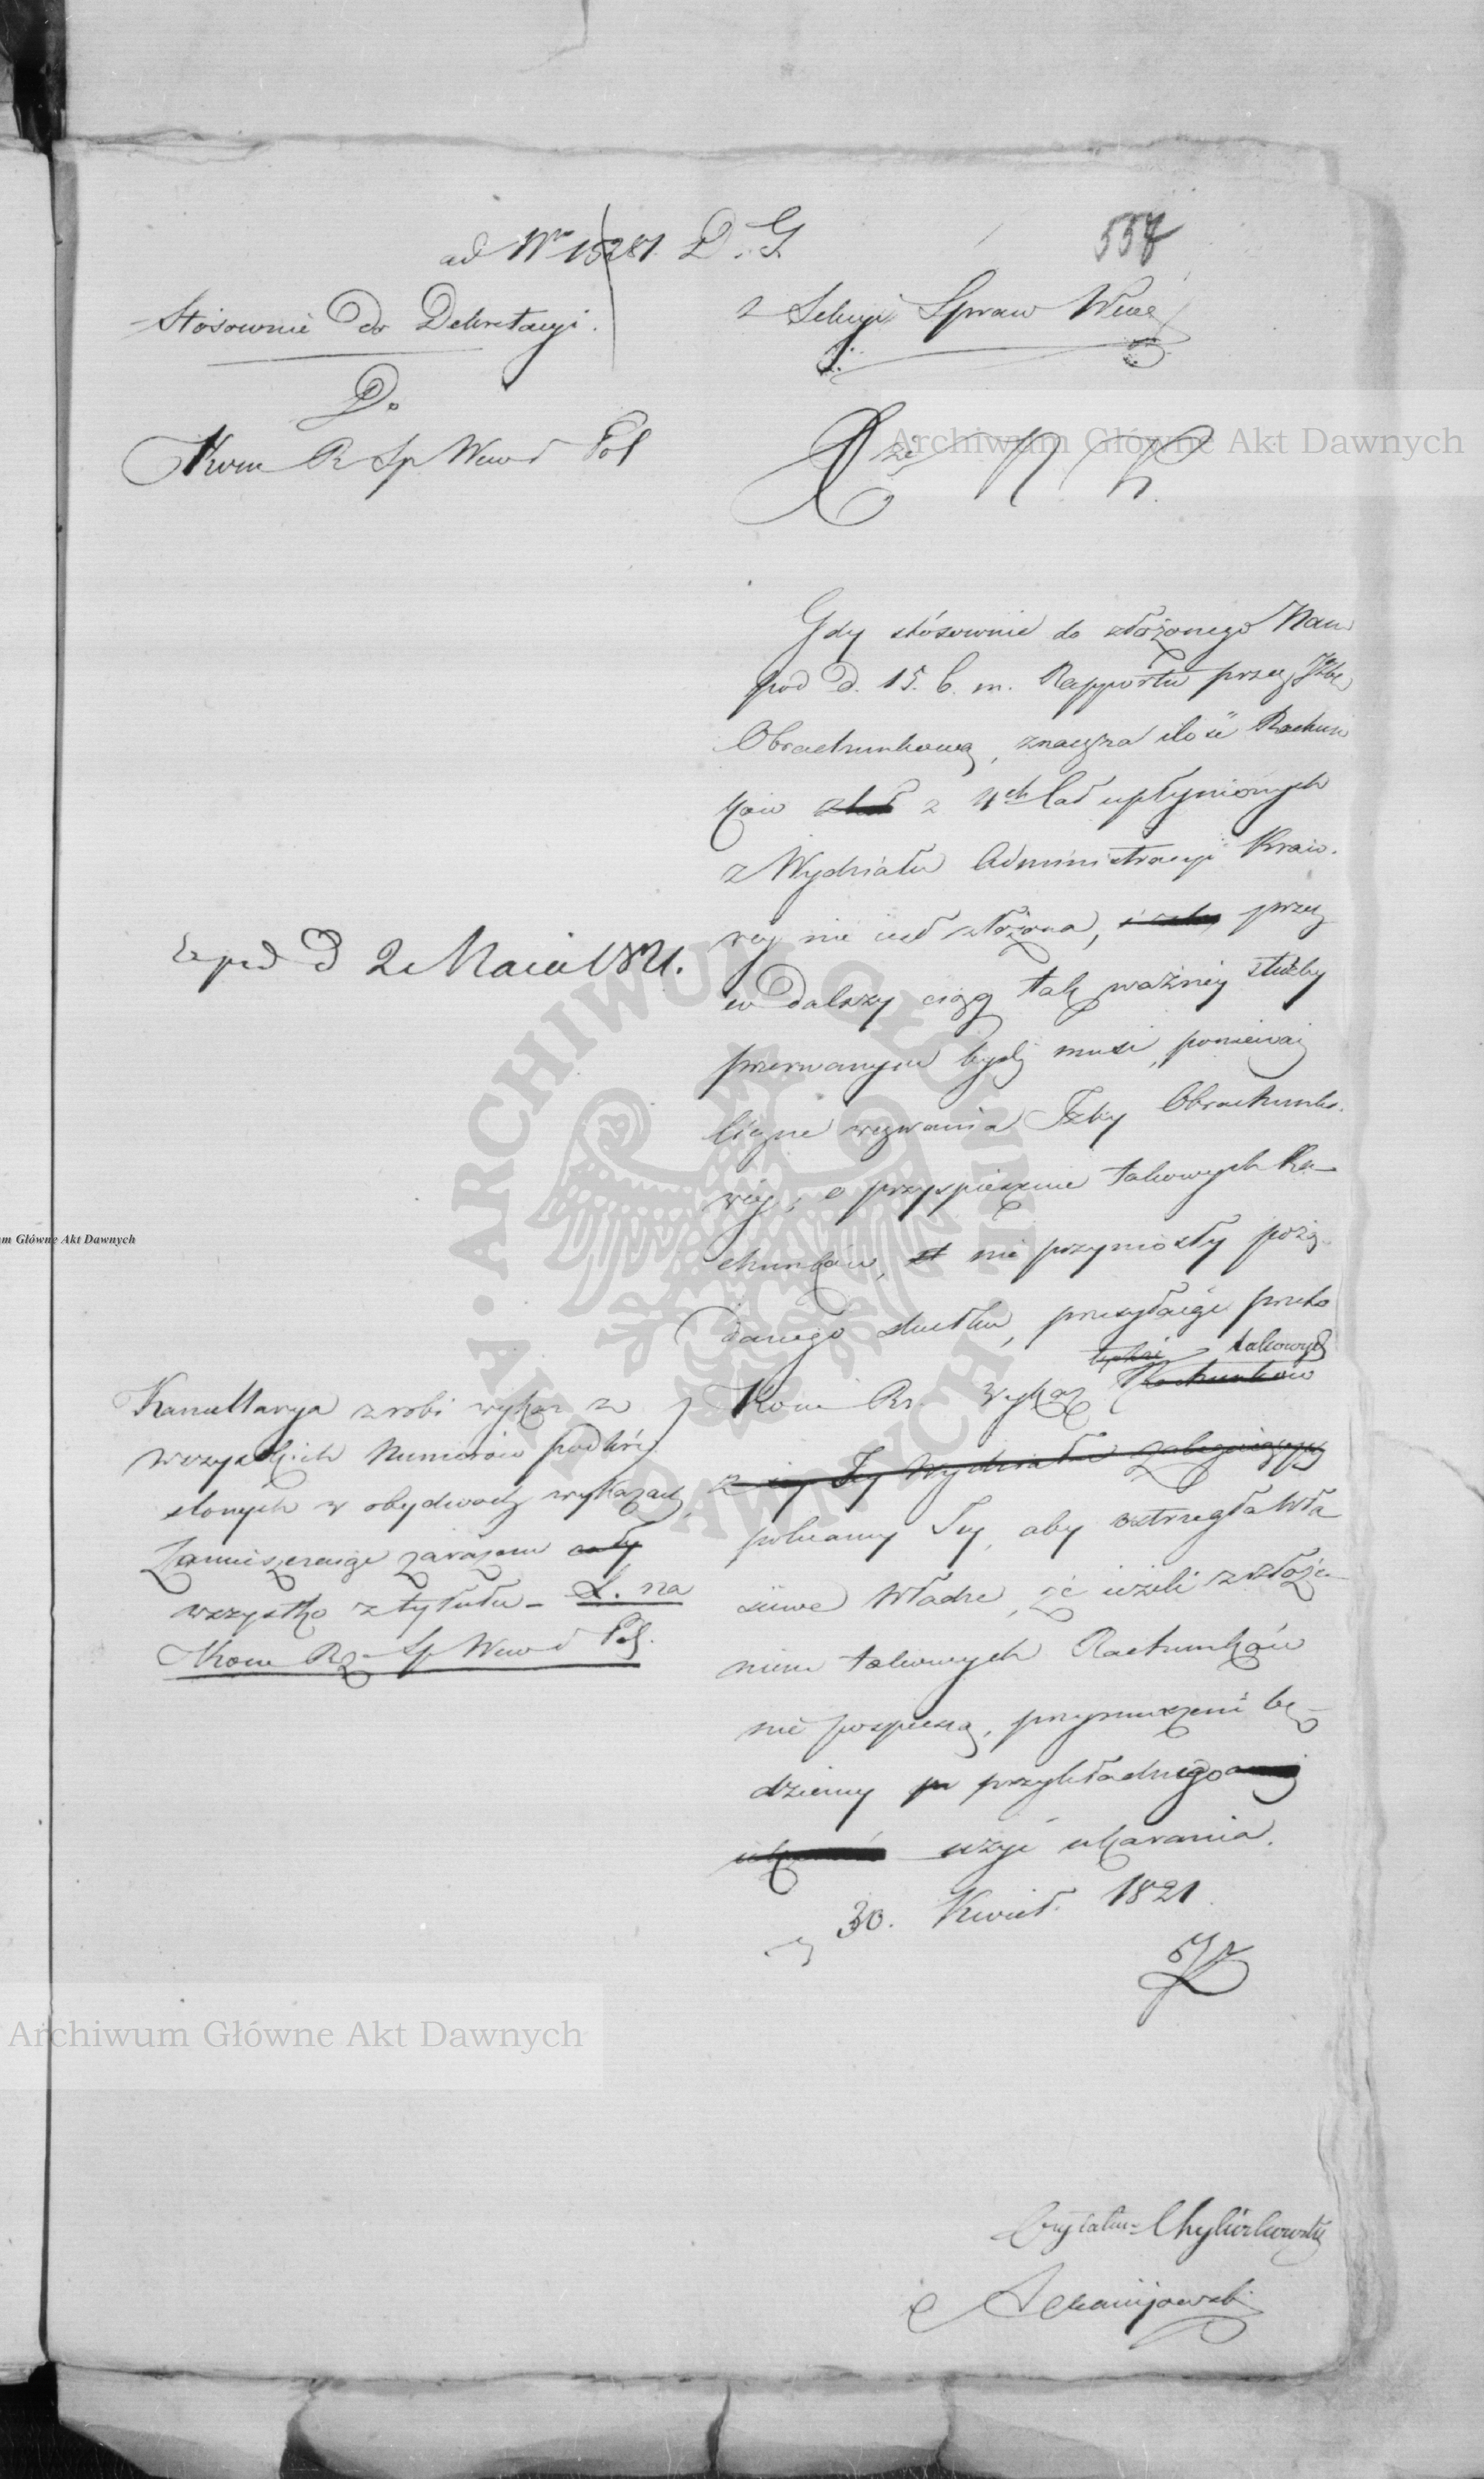 ad Nro 15281 D. G.
557
Stósownie do Dekretacyi.
z Sekcyi Spraw Wew
Do
Kom R Sp Wew i Pol
X N K.
Gdy stósownie do złożonego Nam
pod d. 15. b. m. Rapportu przez Izbę
Obrachunkową, znaczna ilość Rachun
ków z 4ch lat upłynionych
z Wydziału Administracyi Kraio.
wey nie iest złożona, przez
co dalszy ciąg tak ważney służby
przerwanym bydź musi, ponieważ
liczne wezwania Izby Obrachunko.
wey, o przyspieszenie takowych Ra-
chunków, nie przyniosły pożą-
danego skutku, przesyłaiąc przeto
takowych
Kom Rz. Wykaz Rachunków
polecamy Jey, aby ostrzegła Wła
ściwe Władze, że ieżeli z złoże
niem takowych Rachunków
nie pospieszą, przymuszeni bę-
dziemy przykładnego
użyć ukarania.
30. Kwiet. 1821.
Exped D 2 Maia 1821.
Kancellarya zrobi wykaz ze
wszystkich Numerów podkry
slonych w obydwóch wykazach,
Zamieszczaiąc zarazem
wszystko z tytułu - L. na
Kom Rz Sp Wew i Pol.
Czytałem Chyliczkowski
Archiwum Główne Akt Dawnych
m Główne Akt Dawnych
ARCHIWUM GŁÓWNE AKT DAWNYCH
Archiwum Główne Akt Dawnych